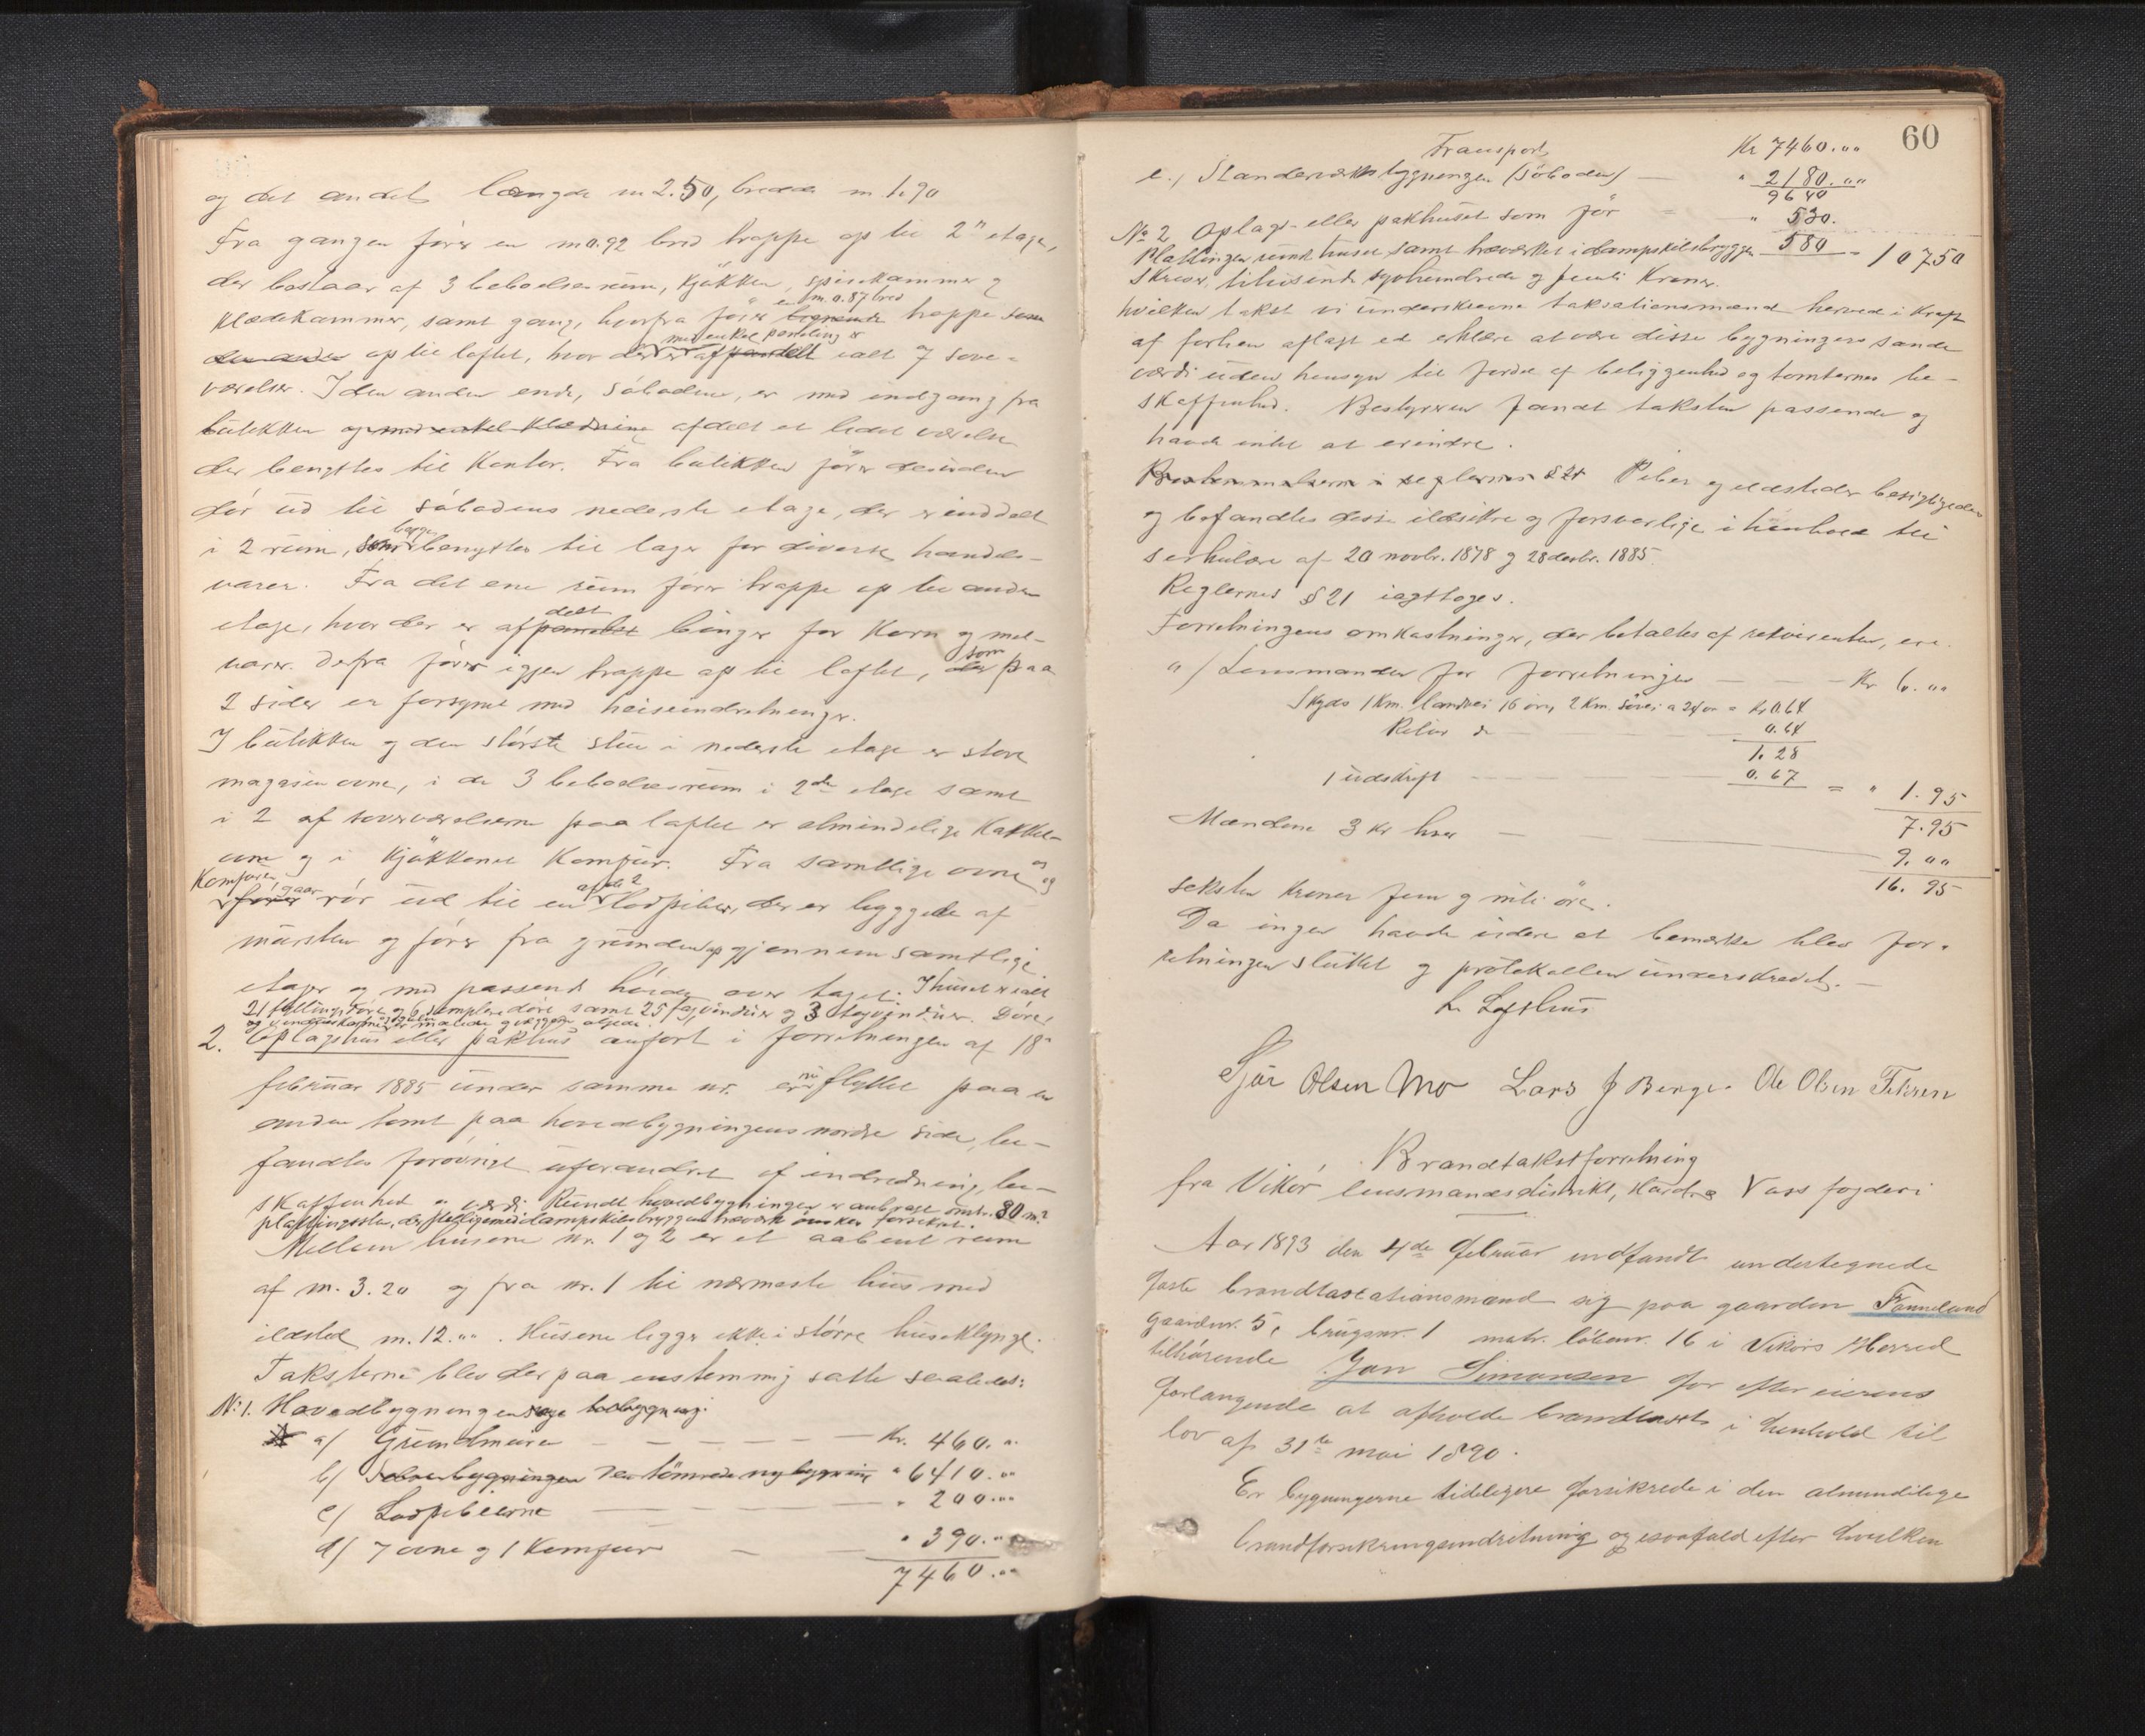 og det andet længde m 2.50, bredde m. 1.90
Fra gangen fører en m 0.92 bred trappe op til 2n etage,
der bestaar af 3 beboelsesrum, kjøkken, spisekammer og
en m. 0.87 bred
klædekammer, samt gang, hvorfra fører trappe
med enkel paneling er
op til loftet, hvor der er ialt 7 sove-
værelser. I den anden ende, søboden, er med indgang fra
butikken og med enkel klædning afdelt et lidet værelse
der benyttes til kontor. Fra butikken fører desuden
dør ud til søbodens nederste etage, der er inddelt
begge
i 2 rum, som benyttes til lager for diverse handels-
varer. Fra det ene rum fører trappe op til anden
delt
etage, hvor der er afpanelet binger for korn og mel-
som
varer. Derfra fører igjen trappe op til loftet, der paa
2 sider er forsynet med heiseindretninger.
I butikken og den største stue i nederste etage er store
magasinovne, i de 3 beboelsesrum i 2den etage samt
i 2 af soveværelserne paa loftet er almindelige kakkel-
ovne og i kjøkkenet komfur. Fra samtlige ovne og
komfuren gaar af de 2
fører rør ud til en lodpiber, der er byggede af
mursten og fører fra grunden op gjennem samtlige
etager og med passende høide over taget. I huset er ialt
21 fyllingsdøre og 6 simplere døre samt 25 fagvinduer og 3 fagvinduer. Døre,
og vinduskarmer er malede
2. Oplagshus eller pakhus anført i forretningen af 18n
nu
februar 1885 under samme nr. er flyttet paa en
anden tomt paa hovedbygningens nordre side, be-
fandtes forøvrigt uforandret af indredning, be-
skaffenhed og værdi. Rundt hovedbygningen er anbragt omtr. 80 m2
platningssten, der tilligemed dampskibsbryggens træverk ønskes forsikret.
Mellem husene nr. 1 og 2 er et aabent rum
af m. 3.20 og fra nr. 1 til nærmeste hus med
ildsted m. 12."" . Husene ligger ikke i større huseklynge.
Taksterne blev derpaa enstemmig satte saaledes:
No 1. Hovedbygningen
a/ Grundmuren Kr. 460."
b/ Selve bygningen den tømrede nybygning " 6410.""
c/ Lodpiberne " 200.""
d/ 7 ovne og 1 komfur " 390.""
7460.""
60
Transport Kr 7460.""
e./ Standerværksbygningen (søboden) " 2180.""
9640
No 2 Oplags- eller pakhuset som før " 530.
Platningen rundt huset samt træverket i dampskibsbryggen 580 = 10750
Skriver titusende syvhundrede og femti Kroner.
hvilken takst vi underskrevne taksationsmænd herved i kraft
af forhen aflagt ed erklære at være disse bygningers sande
værdi uden hensyn til fordel af beliggenhed og tomternes be-
skaffenhed. Bestyreren fandt taksten passende og
havde intet at erindre.
Bestemmelserne i reglernes § 21 Piber og ildsteder besigtigedes
og befandtes disse ildsikre og forsvarlige i henhold til
serkulære af 20 novbr. 1878 og 28 decbr. 1885.
Reglernes § 21 iagttoges.
Forretningens omkostninger, der betaltes af rekvirenten, ere
a/ Lensmanden for forretningen Kr 6.""
Skyds 1 Km. landvei 16 øre, 2 Km. søvei a 24 øre = Kr 0.64
Retur do 0.64
1.28
1 udskrift 0.67 = " 1.95
7.95
Mændene 3 kr hver 9.""
16.95
seksten Kroner fem og niti øre.
Da ingen havde videre at bemærke blev for-
retningen sluttet og protokollen underskrevet.
L. Lofthus
Sjur Olsen Mo Lars J Berge Ole Olsen Teksen
Brandtakstforretning
fra Vikør lensmandsdistrikt, Hardr. Voss fogderi
Aar 1893 den 4de februar indfandt undertegnede
faste brandtaxtationsmænd sig paa gaarden Tannelund
gaardnr. 5, brugsnr. 1 matr. løbenr. 16 i Vikørs Herred
tilhørende Jon Simonsen for efter eierens
forlangende at afholde brandtaxt i henhold til
lov af 31te mai 1890.
Er bygningerne tidligere forsikrede i den almindelige
brandforsikringsindretning og isaafald efter hvilken